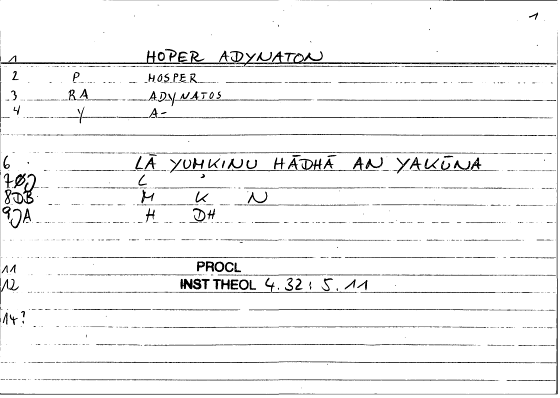 1
1 HOPER ADYNATON
2 P HOSPER
3 RA ADYNATOS
4 Y A-
6 LĀ YUMKINU HĀDHĀ AN YAKŪNA
7 L
8DB M K N
9JA H DH
11 PROCL
12 INST THEOL 4.32; 5.11
14?